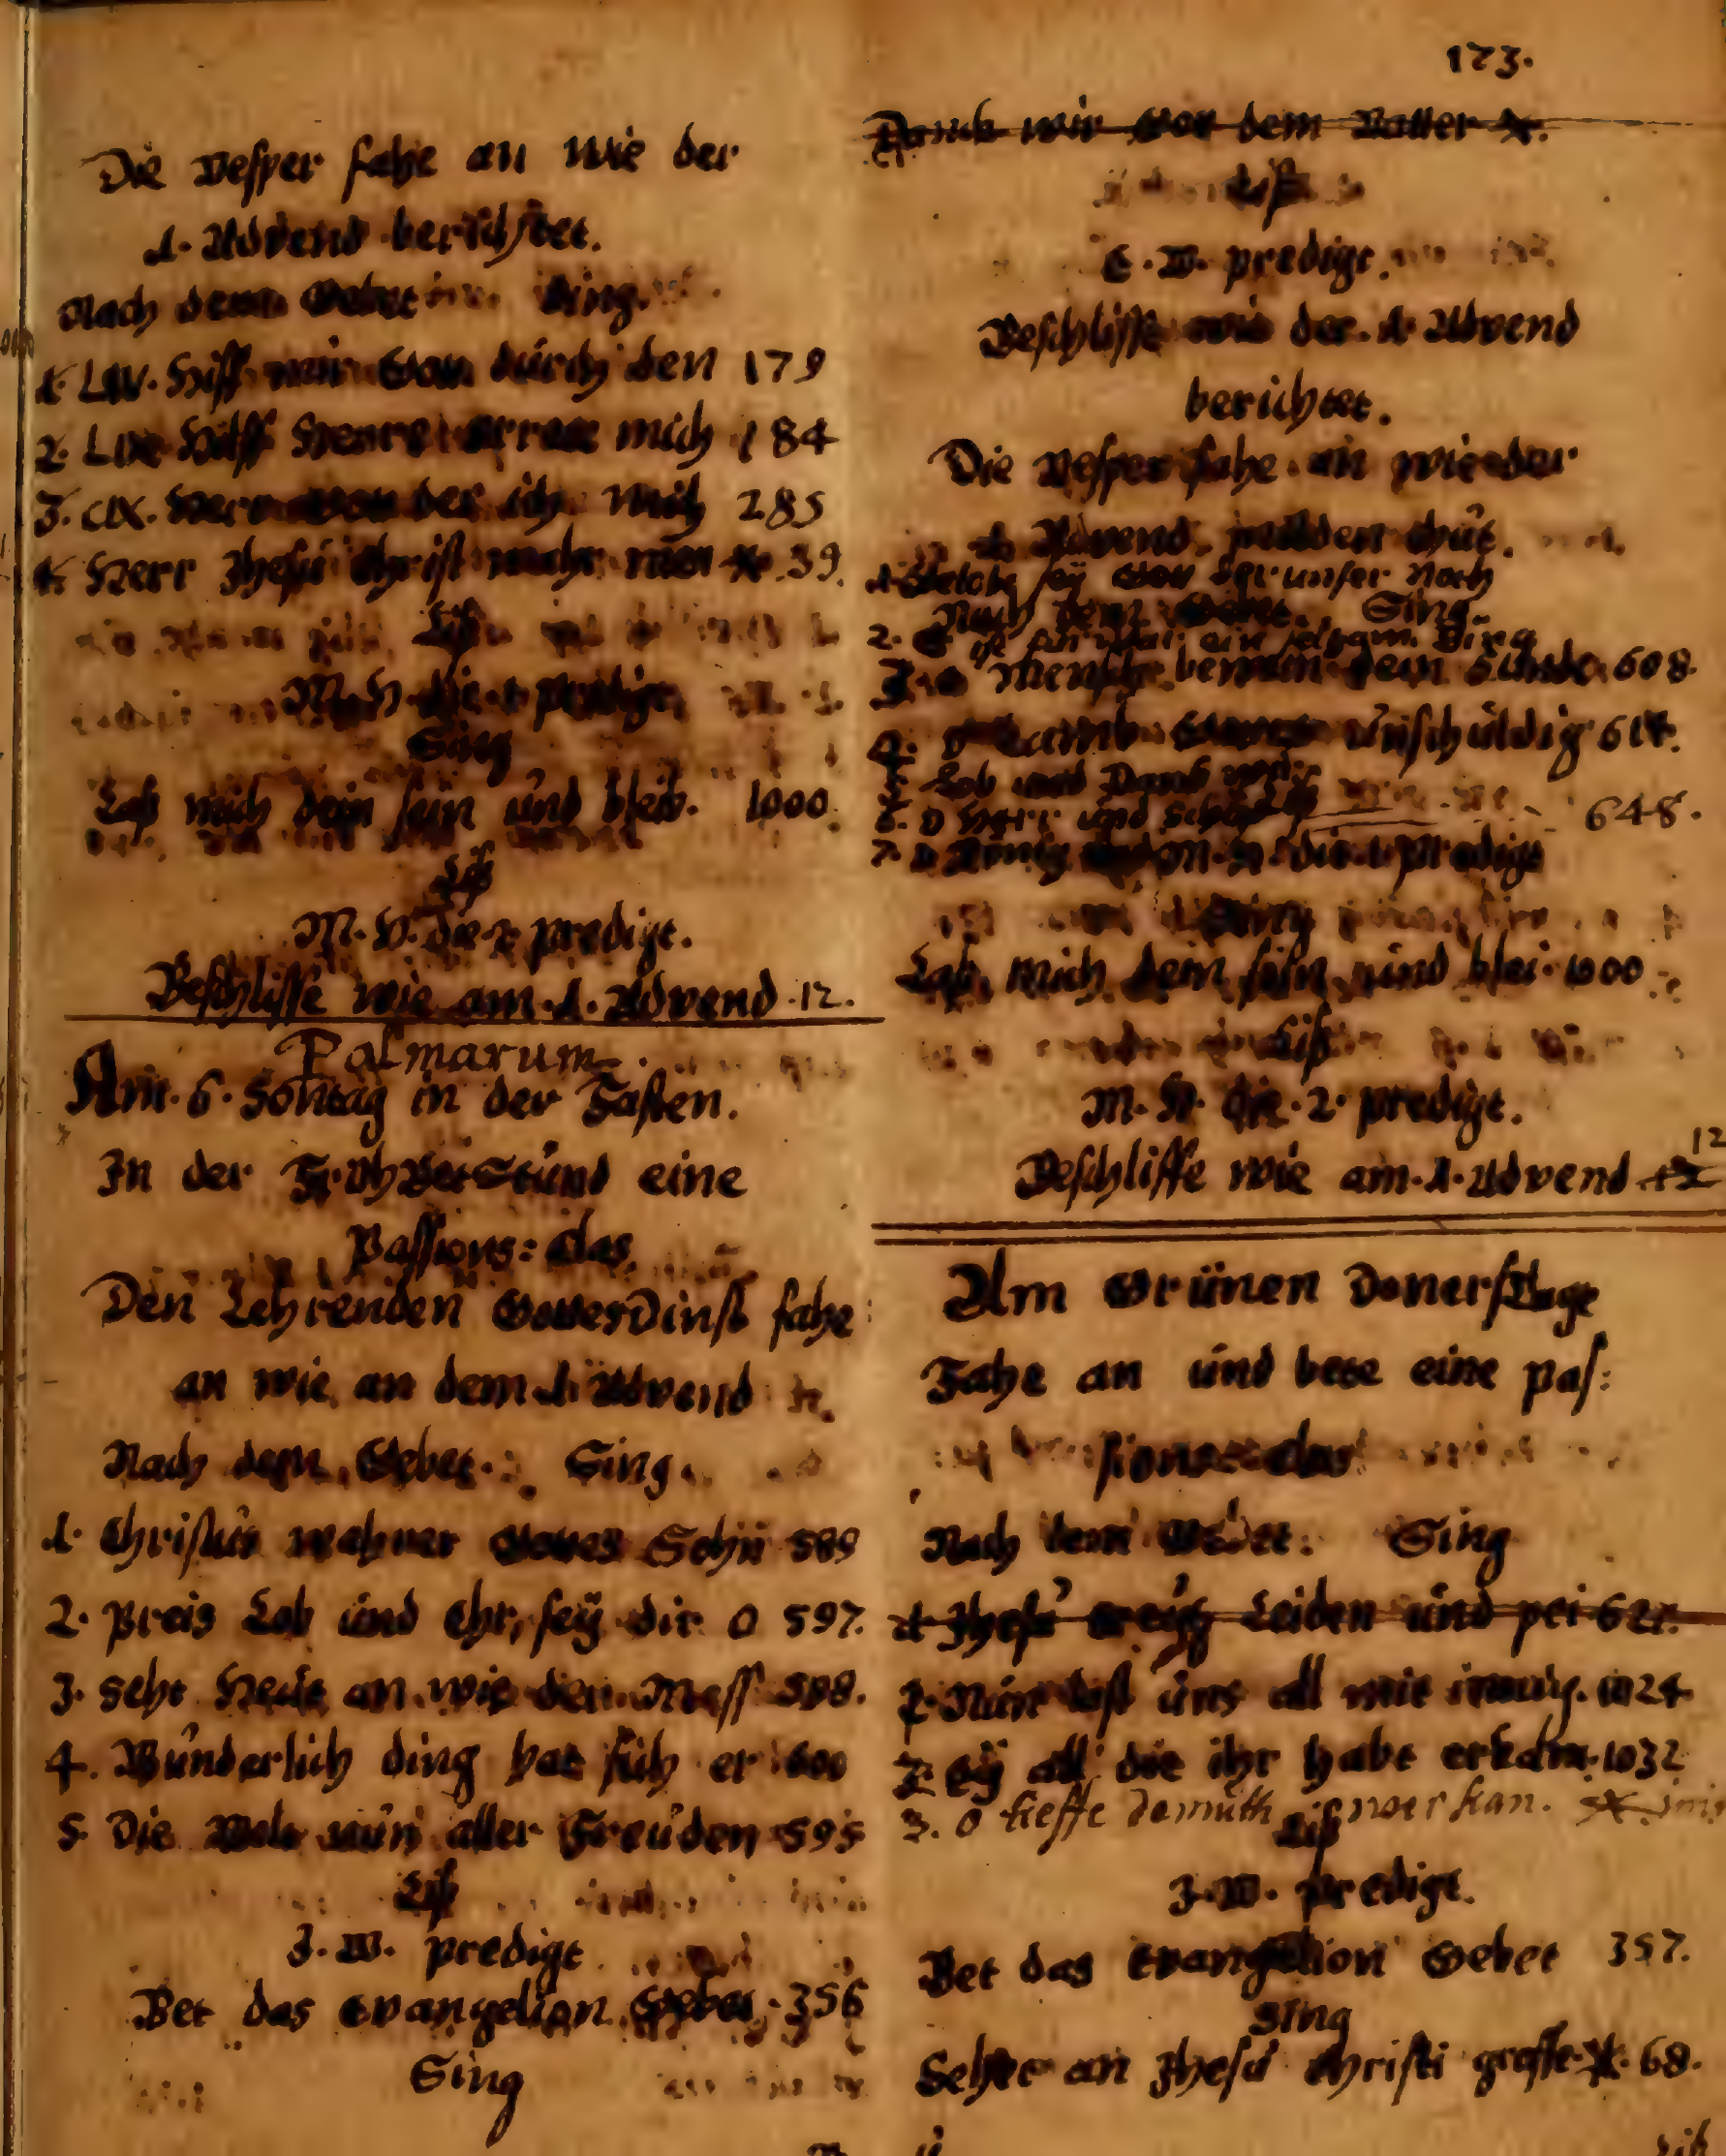 Die Vesper fahe an Wie der
1. Advend berichtet.
Nach dem Gebet Sing.
1. LIV. Hilff mir Gott durch den 179
2. LIX Hilff Herre errett mich 184
3. CIX. Herr der ich mich 285
4. Herr Jhesu Christ wahr 39.
Liß
M. H. die 1 predigt.
Sing
Laß mich dein sein und bleib. 1000.
Liß
M. H. die 2 predigt.
Beschlisse wie am 1. Advend 12.
Palmarum.
Am 6. Sontag in der Fasten.
In der FruhBetStund eine
Passions: das
Den Lehrenden GottesDinst fahe
an wie an dem 1. Advend
Nach dem Gebet. Sing.
1. Christus wahrer Gottes Sohn 589
2. Preis Lob und Ehr, sey dir O 597.
3. Seht Heute an wie der Mess 598.
4. Wunderlich ding hat sich er 600
5. Die Welt nun aller Freuden 595
Liß
J. W. predigt
Bet das Evangelion Gebet 356
Sing
173.
Danck wir Got dem Vatter
Liß
E. W. predigt.
Beschlisse wie der 1. Advend
berichtet.
Die Vesper fahe an wie der
1. Advend melden thut.
1. Gelobt sey Got der unser Noth
Nach dem Gebet. Sing.
2. Es ist ein seltzam Ding
3. O Mensch bewein dein Sunde 608.
4. O Lamb Gottes Unschuldig 614.
5. Lob und Danck
6. O Herr und Schöpfer 648.
7. O König M. H. die 1. predigt
Sing
Laß mich dein sein und blei. 1000
Liß
M. H. die 2. predigt.
12
Beschlisse wie am 1. Advend 12
Am Grünen DonersTage
Fahe an und bete eine pas:
sions: das
Nach dem Gebet: Sing
1 Jhesu Creutz Leiden und pei 621.
2. Nun last uns all mit innig. 1024.
2. Ey all die ihr habt erkdnt. 1032
3. O tieffe demuth wer kan.
Liß
J. W. predigt.
Bet das Evangelion Gebet 357.
Sing
Sehet an Jhesu Christi grosse 68.